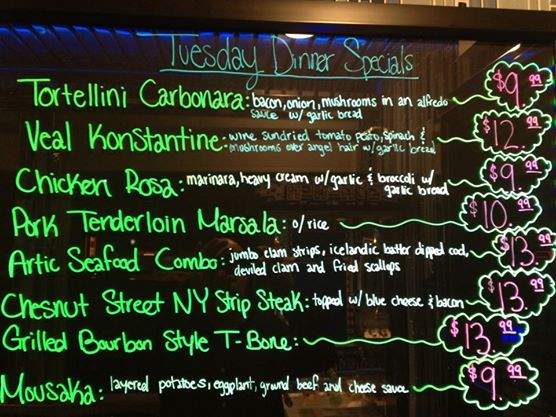 Tuesday Dinner Specials
Tortellini Carbonara: bacon, onion, mushrooms in an alfredo sauce w/ garlic bread $9.99
Veal Konstantine: wine sundried tomato pesto, spinach & mushrooms over angel hair w/ garlic bread $12.99
Chicken Rosa: marinara, heavy cream w/ garlic & broccoli w/ garlic bread $9.99
Pork Tenderloin Marsala: o/rice $10.99
Artic Seafood Combo: jumbo clam strips, icelandic batter dipped cod, deviled clam and fried scallops $13.99
Chesnut Street NY Strip Steak: topped w/ blue cheese & bacon $13.99
Grilled Bourbon Style T-Bone: $13.99
Mousaka: layered potatoes, eggplant, grund beef and cheese sauce $9.99